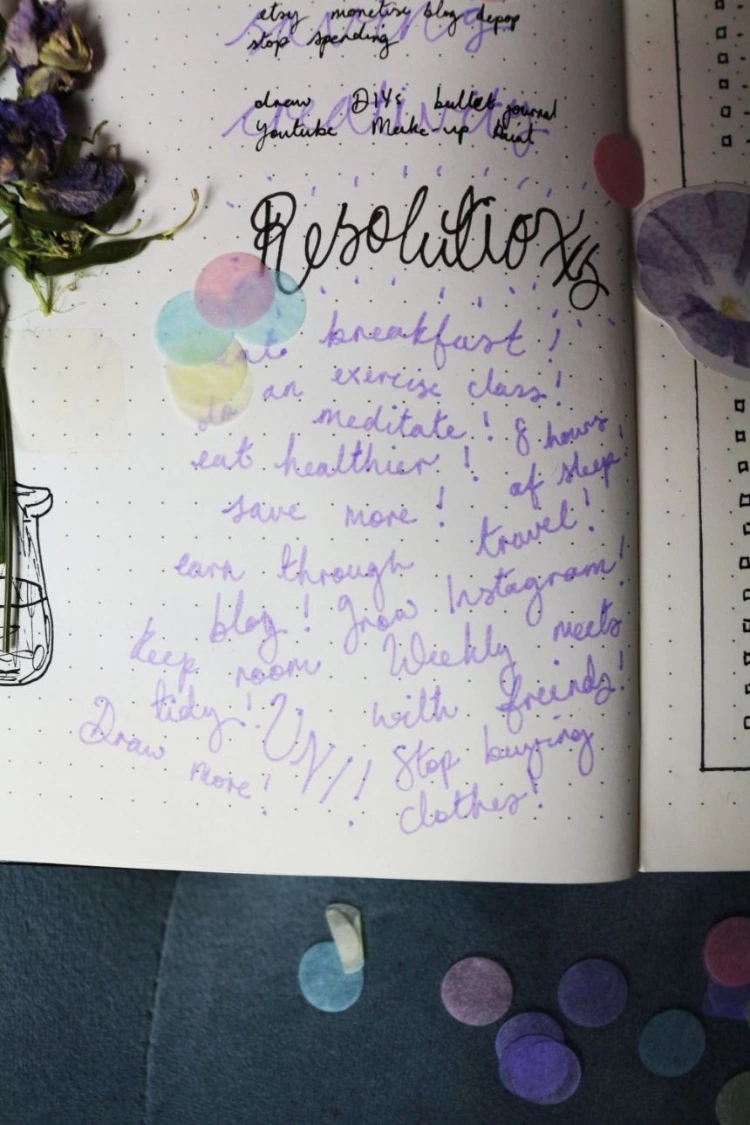 savings
etsy monetise blog depop
stop spending
creativity
draw DIYs bullet journal
Youtube Make-up
Resolutions
eat breakfast!
do an exercise class!
meditate! 8 hours
eat healthier! of sleep!
save more! travel!
earn through
blog! Grow Instagram!
Keep room Weekly meets
tidy! with freinds!
Draw Stop buying
more! clothes!